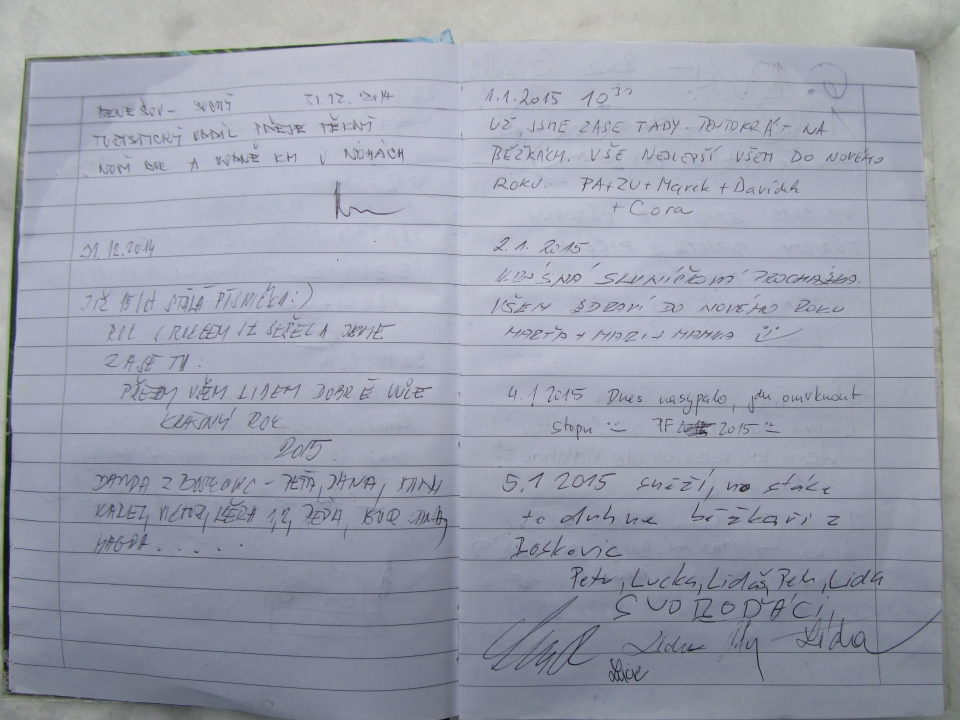 31.12.2014
TURISTICKÝ ODDÍL PŘEJE PĚKNÝ
NOVÝ ROK A HODNĚ KM V NOHÁCH
31.12.2014
JIŽ STÁLÁ PÍSNIČKA:)
ROK S ROKEM SE SEŠEL A JSME
ZASE TU.
PŘEJEM VŠEM LIDEM DOBRÉ VŮLE
KRÁSNÝ ROK
2015
BANDA Z BOSKOVIC - PÉŤA, JANA,
KAREL, VIKTOR, 1,2, JANA,
MAGDA.....
1.1.2015 10³⁰
UŽ JSME ZASE TADY. TENTOKRÁT NA
BĚŽKÁCH. VŠE NEJLEPŠÍ VŠEM DO NOVÉHO
ROKU. PA+ZU+Marek+Davídek
+ Cora
2.1. 2015
KRÁSNÁ SLUNÍČKOVÁ PROCHÁZKA.
VŠEM ZDRAVÍ DO NOVÉHO ROKU
MARŤA + MAŽI + MAMKA
4.1 2015 Dnes nasypalo, jdu omrknout
stopu :-) PF 2015 :-)
5.1 2015 sněží, no stále
to druhne běžkaři z
Boskovic
Petr, Lucka, Lidáš, Petr, Lida
SVOBOĎÁCI
Lídra